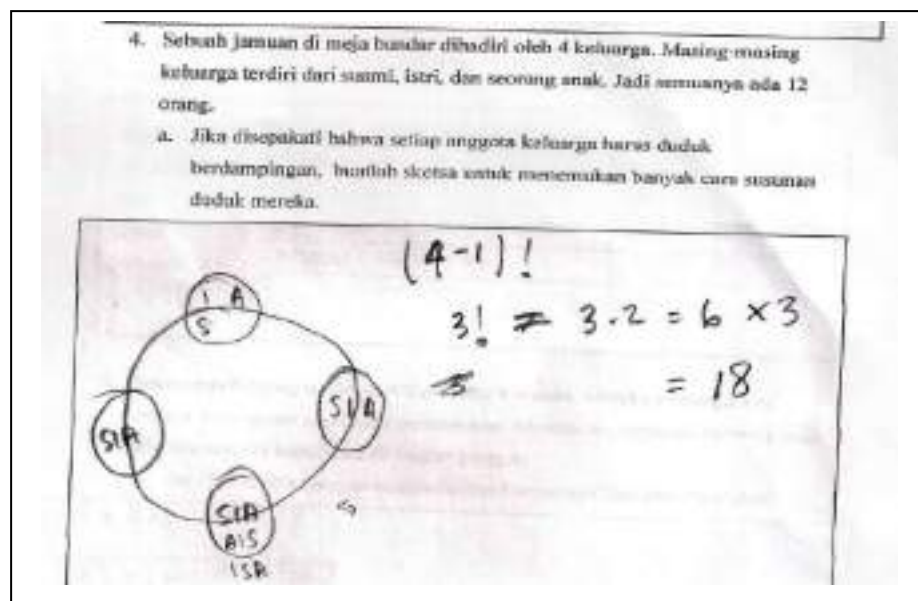 4. Sebuah jamuan di meja bundar dihadiri oleh 4 keluarga. Masing-masing
keluarga terdiri dari suami, istri, dan seorang anak. Jadi semuanya ada 12
orang.
a. Jika disepakati bahwa setiap anggota keluarga harus duduk
berdampingan, buatlah sketsa untuk menemukan banyak cara susunan
duduk mereka.
(4-1)!
3! = 3.2 = 6 x 3
= 18
I A
S
SIA
SIA
SIA
AIS
ISA